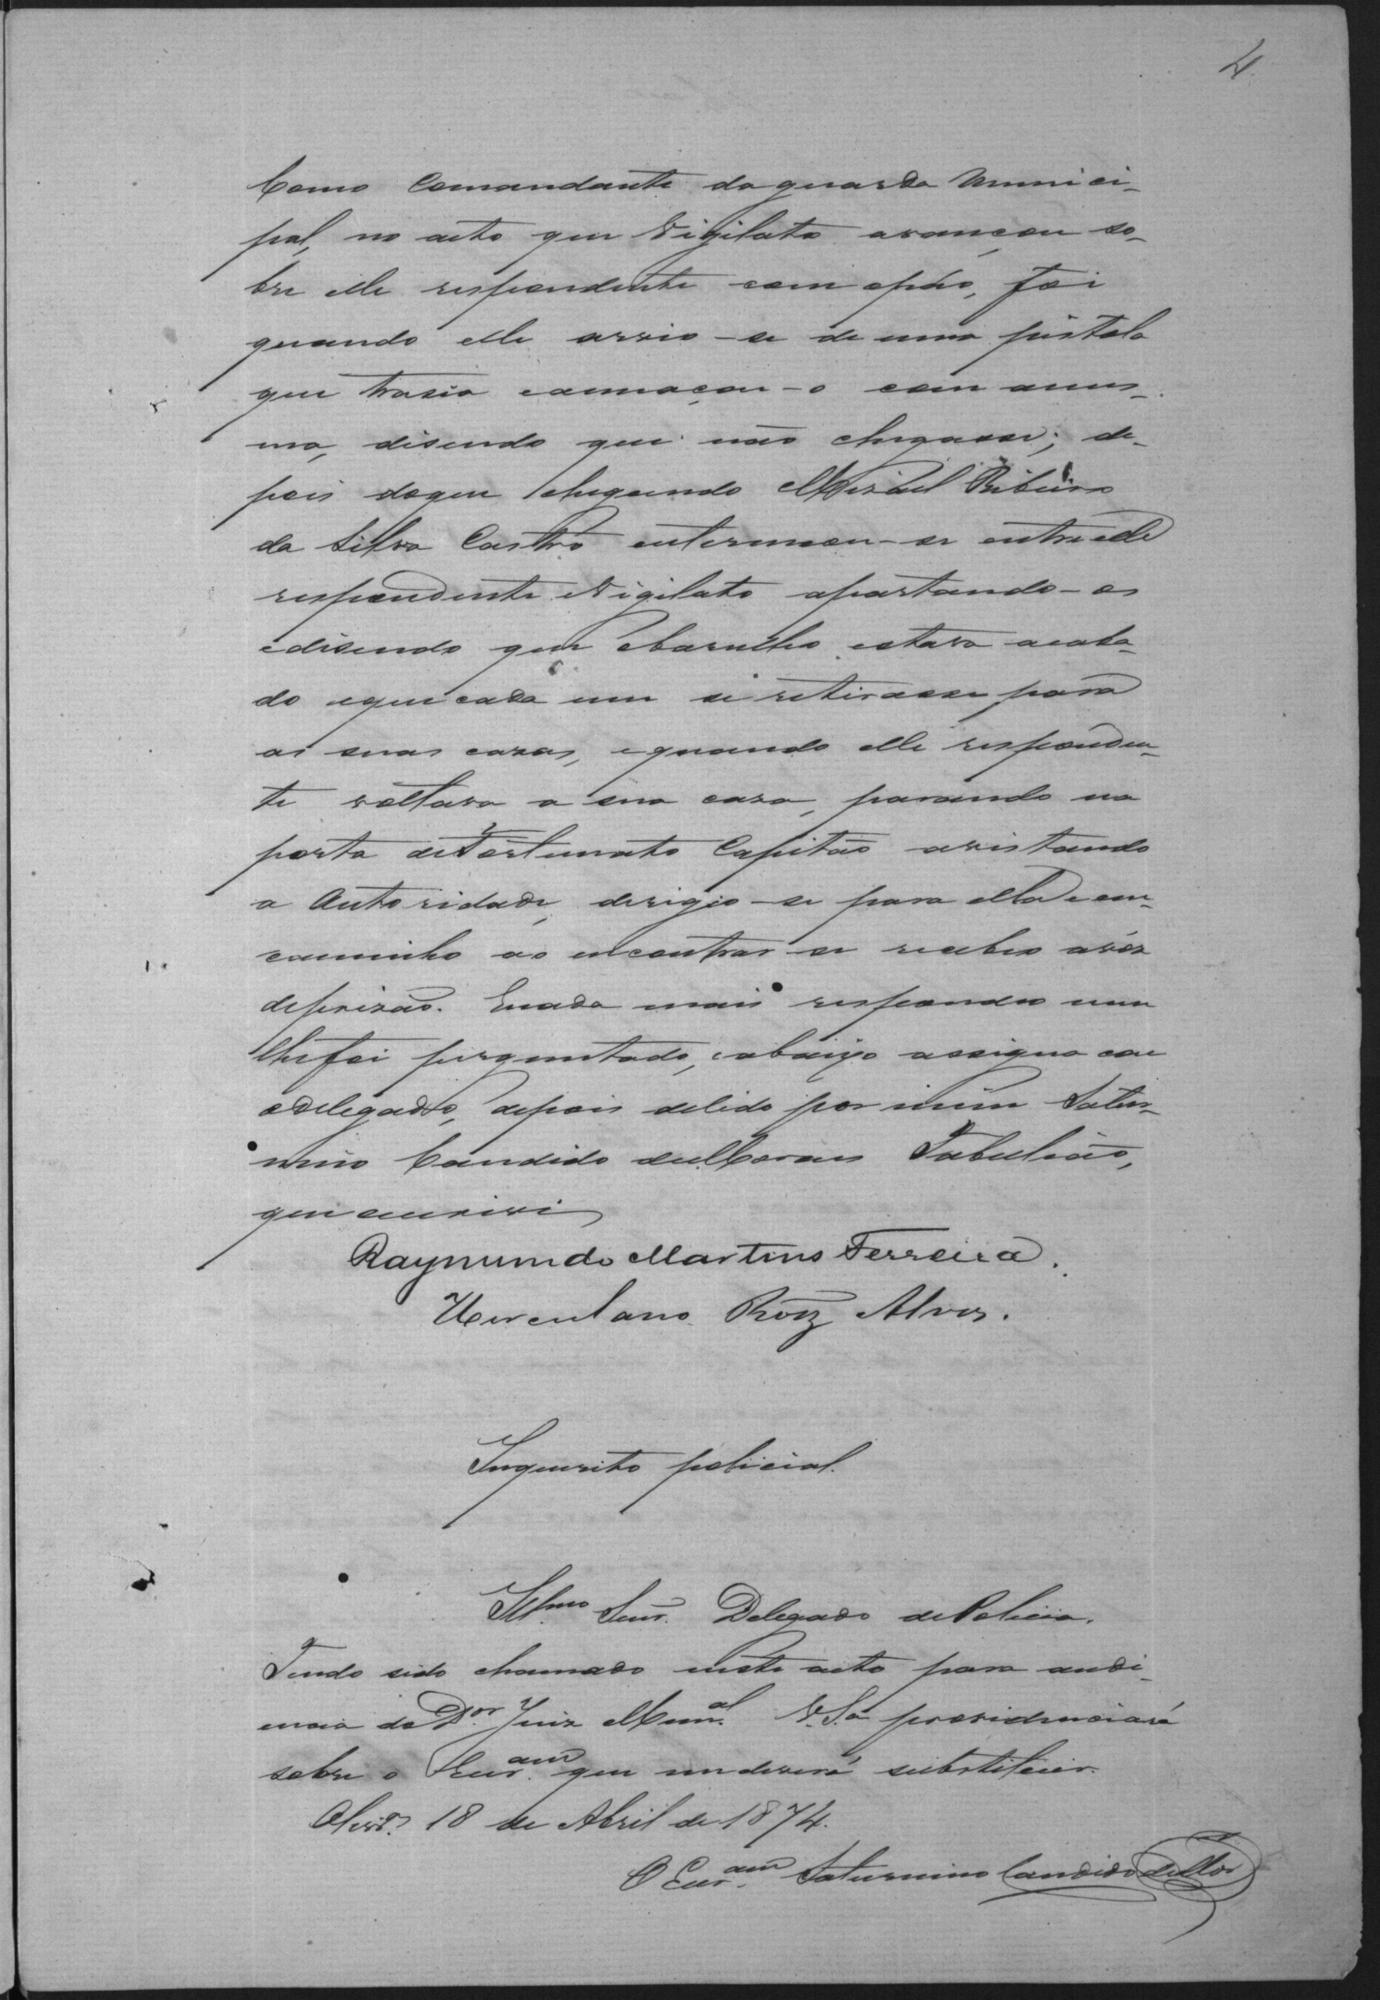 4
Como Comandante da guarda Munici-
pal, no acto que Vigilato avançou so-
bre elle respondente com opáo, foi
quando elle arrio-se de uma pistola
que trasia eameaçou-o com ames-
ma, disendo que não chegasse; de-
pois doque chegando Misael Ribeiro
da Silva Castro entermeou-se entre elle
respondente e Vigilato apartando-os
edisendo que obarulho estava acaba-
do eque cada um si retirasse para
as suas casas, equando elle responden-
te voltava a sua casa, parando na
porta de Fortunato Capitão avistando
a Autoridade, derigio-se para ella e em
caminho ao encontrar-se recebeo avóz
deprizão. Enada mais respondeo nem
lhefoi perguntado, eabaixo assigna com
odelegado, depois delido por mim Satur-
nino Candido deMoraes Tabelião,
que escrivi
Raymundo Martins Ferreira.
Herculano Roiz Alves.
Inquerito policial.
Illmo Senr. Delegado dePolicia.
Tendo sido chamado neste acto para audi-
encia do Dor Juiz Munal V.Sa providenciará
sobre o Escram que medeverá substituir.
18 de Abril de 1874.
O Escram Saturnino Candido deMor